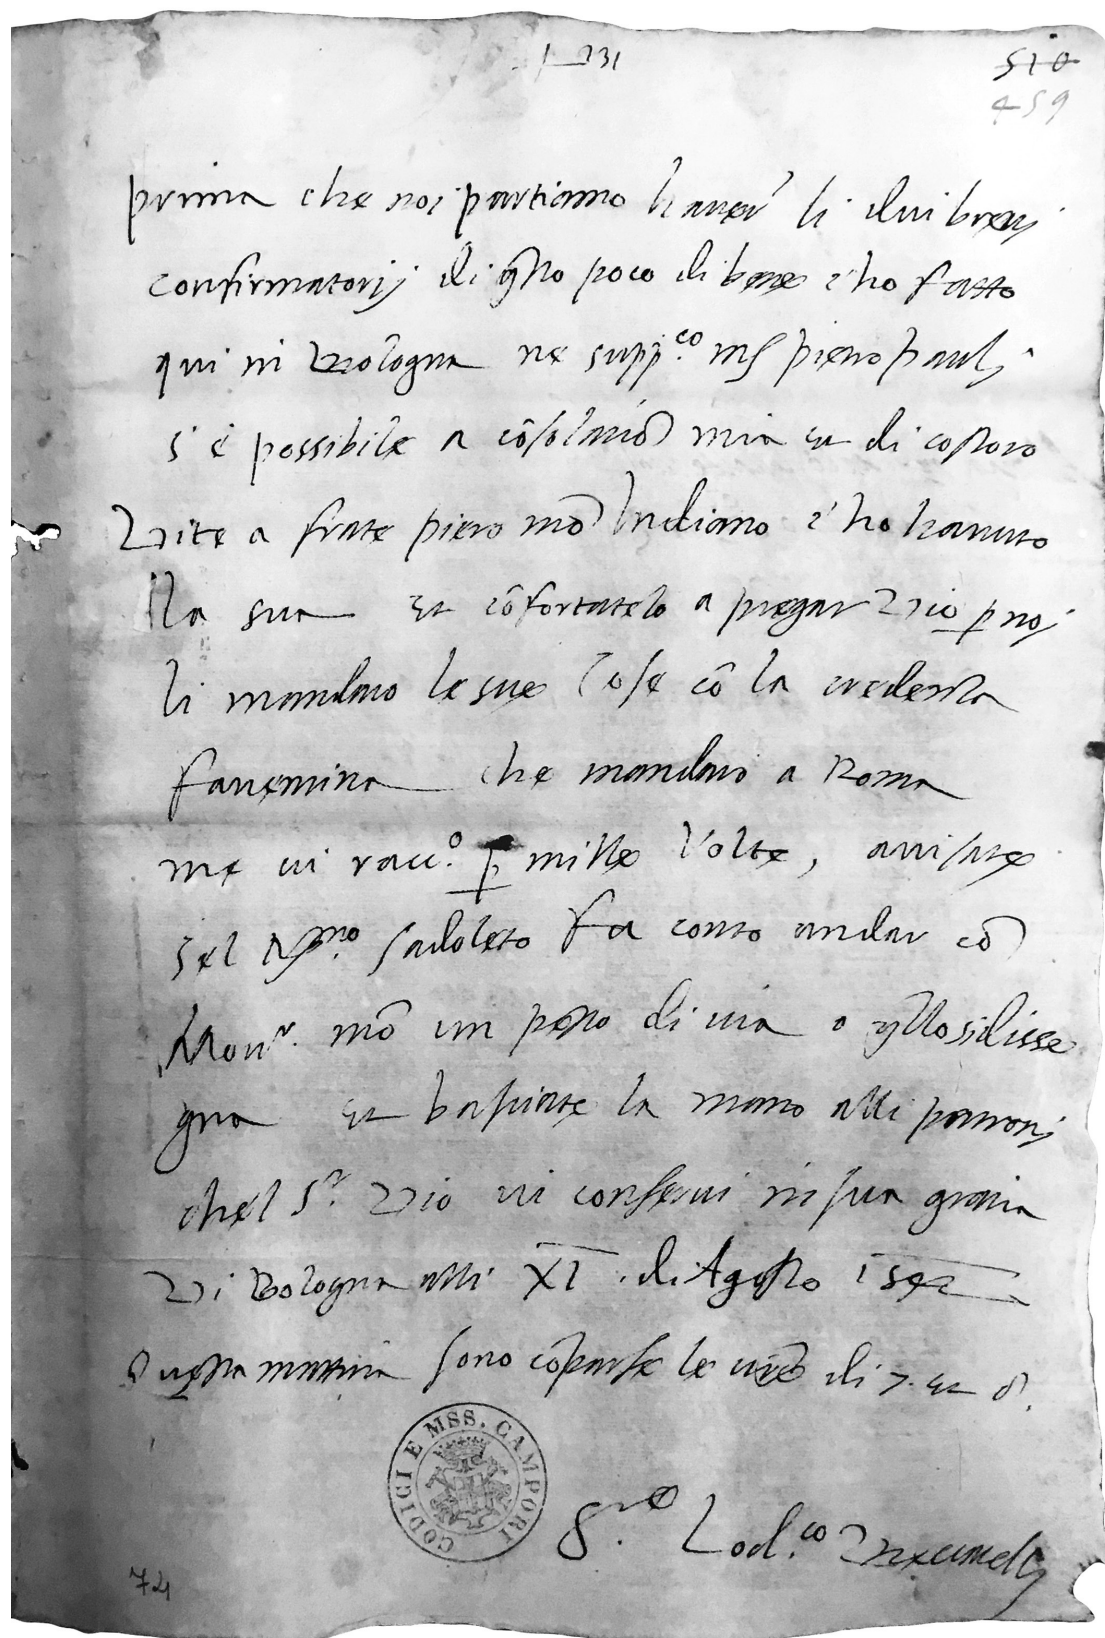 f 231
510
459
prima che noi partiamo haver li dui brevi
confirmatorij di q̃sto poco di bene c'ho fatto
qui in Bologna ne supp.co mſ pieropauli
s'è possibile a cõsolatiõ mia et di costoro
Dite a frate piero mõ Indiano c'ho havuto
la sua et cõfortatelo a pregar Dio p noi
li mandaro le sue cose cõ la credenza
faventina che mandaro a Roma
me vi racc.o p mille volte, avisate
sel R.mo Sadoleto fa conto andar cõ
Mon.r mõ un pezzo di via o q̃llo si disse
gna et basciate la mano alli patroni
chel S.r Dio vi conservi in sua gratia
Di Bologna alli XI di Agosto 1542
Questa mattina sono cõparse le vrẽ di 7. et 8.
CODICI E MSS. CAMPORI
S.re Lod.co Beccadelli
74